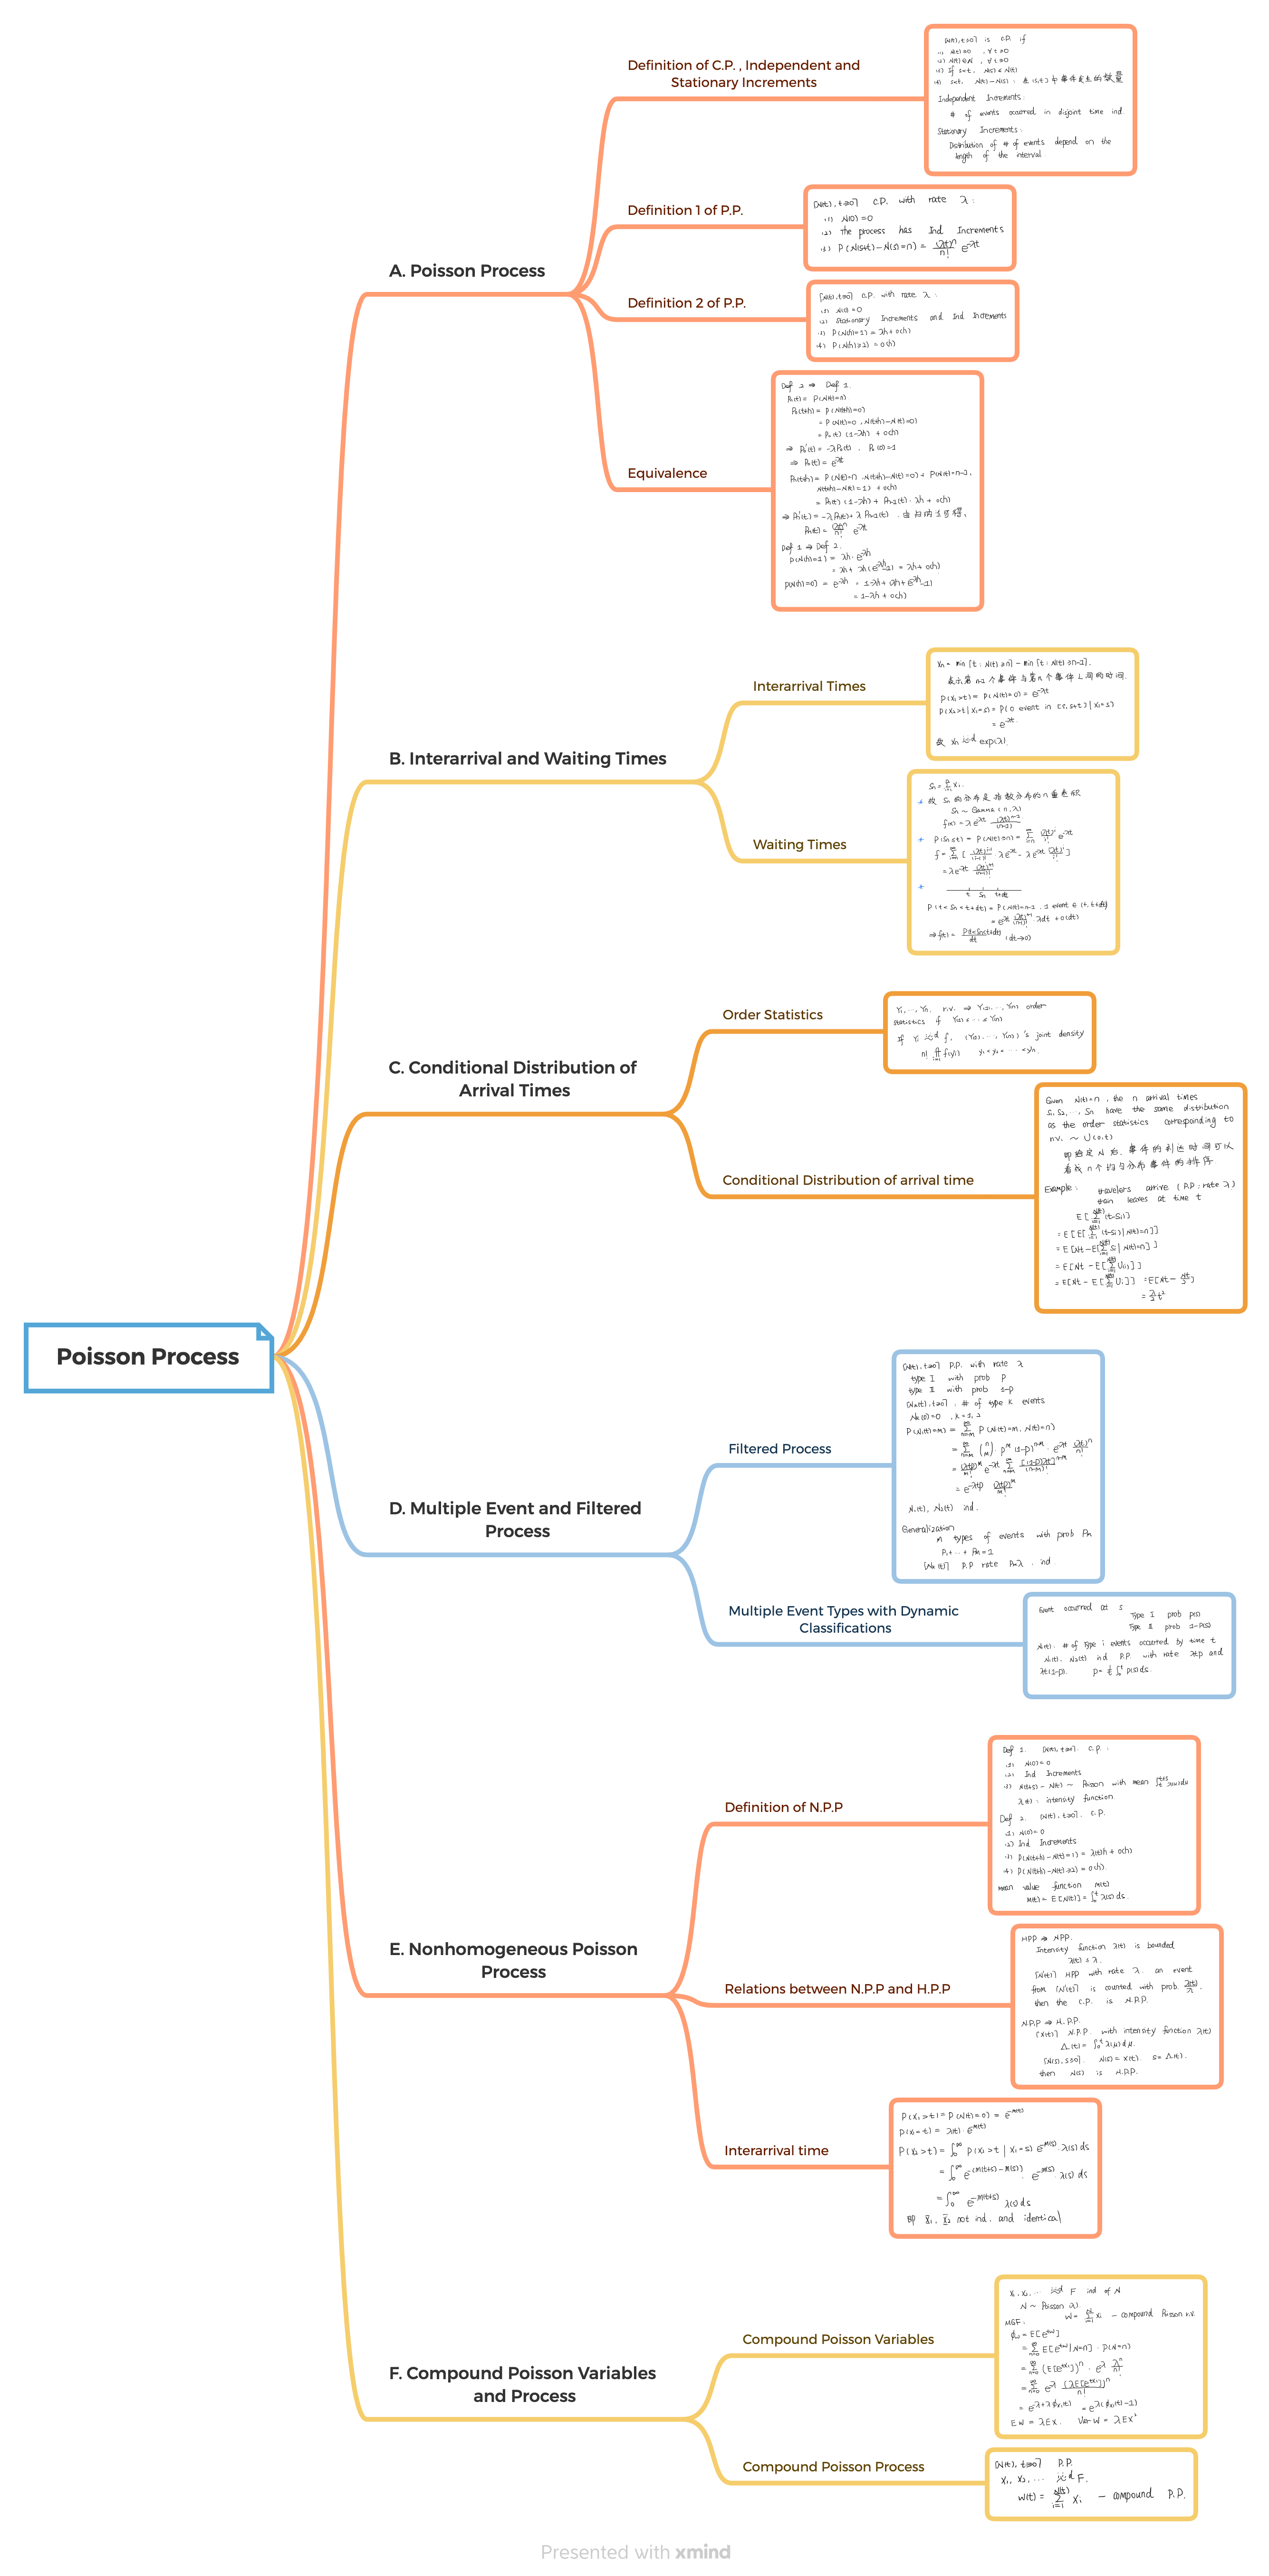 Poisson Process
A. Poisson Process
Definition of C.P. , Independent and
Stationary Increments
{N(t), t≥0} is C.P. if
(1) N(t)≥0 , ∀t≥0
(2) N(t)∈N , ∀t≥0
(3) If s<t, N(s)≤N(t)
(4) s<t, N(t)-N(s): 在(s,t]中事件发生的数量
Independent Increments:
# of events occurred in disjoint time ind.
Stationary Increments:
Distribution of # of events depend on the
length of the interval
Definition 1 of P.P.
{N(t), t≥0} C.P. with rate λ:
(1) N(0)=0
(2) The process has Ind Increments
(3) P(N(s+t)-N(s)=n) = (λt)^n/n! e^-λt
Definition 2 of P.P.
{N(t), t≥0} C.P. with rate λ:
(1) N(0)=0
(2) Stationary Increments and Ind Increments
(3) P(N(h)=1) = λh+o(h)
(4) P(N(h)≥2) = o(h)
Equivalence
Def 2 ⇒ Def 1.
Pn(t) = P(N(t)=n)
P0(t+h) = P(N(t+h)=0)
= P(N(t)=0, N(t+h)-N(t)=0)
= P0(t) (1-λh) + o(h)
⇒ P0'(t) = -λP0(t) , P0(0)=1
⇒ P0(t) = e^-λt
Pn(t+h) = P(N(t)=n, N(t+h)-N(t)=0) + P(N(t)=n-1,
N(t+h)-N(t)=1) + o(h)
= Pn(t) (1-λh) + Pn-1(t)·λh + o(h)
⇒ Pn'(t) = -λPn(t) + λPn-1(t) . 由归纳法可得,
Pn(t) = (λt)^n/n! e^-λt
Def 1 ⇒ Def 2.
P(N(h)=1) = λh·e^-λh
= λh + λh(e^-λh-1) = λh+o(h)
P(N(h)=0) = e^-λh = 1-λh+(λh+e^-λh-1)
= 1-λh+o(h)
B. Interarrival and Waiting Times
Interarrival Times
Xn = min{t: N(t)≥n} - min{t: N(t)≥n-1}.
表示第n-1个事件与第n个事件之间的时间.
P(X1>t) = P(N(t)=0) = e^-λt
P(X2>t|X1=s) = P(0 event in (s,s+t]|X1=s)
= e^-λt.
故 Xn iid exp(λ).
Waiting Times
Sn = Σ(i=1..n) Xi.
+ 故 Sn 的分布是指数分布的n重卷积
Sn ~ Gamma(n,λ)
f(x) = λe^-λt (λt)^n-1/(n-1)!
+ P(Sn≤t) = P(N(t)≥n) = Σ(i=n..∞) (λt)^i/i! e^-λt
f = Σ(i=n..∞) [ (λt)^i-1/(i-1)! ·λe^-λt - λe^-λt (λt)^i/i! ]
= λe^-λt (λt)^n-1/(n-1)!
+ t Sn t+dt
P(t<Sn<t+dt) = P(N(t)=n-1, 1 event ∈ (t,t+dt))
= e^-λt (λt)^n-1/(n-1)! ·λdt + o(dt)
⇒ f(t) = P(t<Sn<t+dt)/dt (dt→0)
C. Conditional Distribution of
Arrival Times
Order Statistics
Y1,…,Yn, r.v. ⇒ Y(1),…,Y(n) order
statistics if Y(1)≤…≤Y(n)
If Yi iid f, (Y(1),…,Y(n))'s joint density
n! Π(i=1..n) f(yi) y1<y2<…<yn.
Conditional Distribution of arrival time
Given N(t)=n, the n arrival times
S1,S2,…,Sn have the same distribution
as the order statistics corresponding to
n r.v. ~ U(0,t)
即给定N后, 事件的到达时间可以
看成n个均匀分布事件的排序
Example: travelers arrive (P.P: rate λ)
train leaves at time t
E[Σ(i=1..N(t)) (t-Si)]
= E[E[Σ(i=1..N(t)) (t-Si)|N(t)=n]]
= E[Nt - E[Σ(i=1..N(t)) Si|N(t)=n]]
= E[Nt - E[Σ(i=1..N(t)) U(i)]]
= E[Nt - E[Σ(i=1..N(t)) Ui]] = E[Nt - Nt/2]
= λ/2 t²
D. Multiple Event and Filtered
Process
Filtered Process
{N(t), t≥0} P.P. with rate λ
type I with prob p
type II with prob 1-p
{Nk(t), t≥0}: # of type k events
Nk(0)=0 , k=1,2
P(N1(t)=m) = Σ(n=m..∞) P(N1(t)=m, N(t)=n)
= Σ(n=m..∞) (n m)·p^m (1-p)^n-m·e^-λt (λt)^n/n!
= (λtp)^m/m! e^-λt Σ(n=m..∞) [(1-p)λt]^n-m/(n-m)!
= e^-λtp (λtp)^m/m!
N1(t), N2(t) ind.
Generalization
n types of events with prob Pn
P1+…+Pn=1
{Nn(t)} P.P rate Pnλ, ind
Multiple Event Types with Dynamic
Classifications
Event occurred at s Type I prob p(s)
Type II prob 1-p(s)
Ni(t): # of Type i events occurred by time t
N1(t), N2(t) ind P.P. with rate λtp and
λt(1-p). p = 1/t ∫0^t p(s)ds.
E. Nonhomogeneous Poisson
Process
Definition of N.P.P
Def 1. {N(t), t≥0}. C.P.:
(1) N(0)=0
(2) Ind Increments
(3) N(t+s)-N(t) ~ Poisson with mean ∫t^t+s λ(u)du
λ(t) = intensity function.
Def 2. {N(t), t≥0}. C.P.
(1) N(0)=0
(2) Ind Increments
(3) P(N(t+h)-N(t)=1) = λ(t)h + o(h)
(4) P(N(t+h)-N(t)≥2) = o(h).
mean value function m(t)
m(t) = E[N(t)] = ∫0^t λ(s)ds.
Relations between N.P.P and H.P.P
HPP ⇒ NPP.
Intensity function λ(t) is bounded
λ(t)≤λ.
{N'(t)} HPP with rate λ. an event
from {N'(t)} is counted with prob. λ(t)/λ,
then the C.P. is N.P.P.
N.P.P ⇒ H.P.P.
{X(t)} N.P.P. with intensity function λ(t)
Λ(t) = ∫0^t λ(μ)dμ.
{N(s), s≥0}. N(s)=X(t). s=Λ(t).
then N(s) is H.P.P.
Interarrival time
P(X1>t) = P(N(t)=0) = e^-m(t)
P(X1=t) = λ(t)·e^-m(t)
P(X2>t) = ∫0^∞ P(X2>t|X1=s) e^-m(s)·λ(s)ds
= ∫0^∞ e^-(m(t+s)-m(s))·e^-m(s)·λ(s)ds
= ∫0^∞ e^-m(t+s) λ(s)ds
即 X1, X2 not ind. and identical
F. Compound Poisson Variables
and Process
Compound Poisson Variables
X1,X2,… iid F ind of N
N ~ Poisson(λ).
MGF: W = Σ(i=1..N) Xi - compound Poisson r.v.
ϕW = E[e^tW]
= Σ(n=0..∞) E[e^tW|N=n]·P(N=n)
= Σ(n=0..∞) (E[e^tX1])^n·e^-λ λ^n/n!
= Σ(n=0..∞) e^-λ (λE[e^tX1])^n/n!
= e^-λ+λϕX1(t) = e^λ(ϕX1(t)-1)
EW = λEX. Var W = λEX²
Compound Poisson Process
{N(t), t≥0} P.P.
X1, X2, … iid F.
W(t) = Σ(i=1..N(t)) Xi - compound P.P.
Presented with xmind